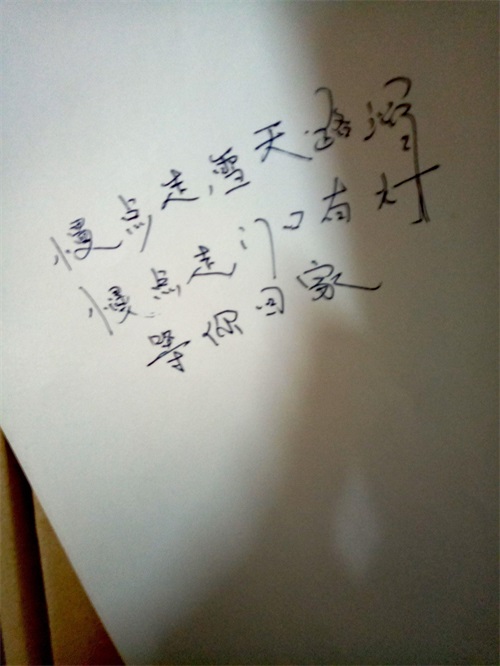 慢点走雪天路滑
慢点走门口有灯
等你回家